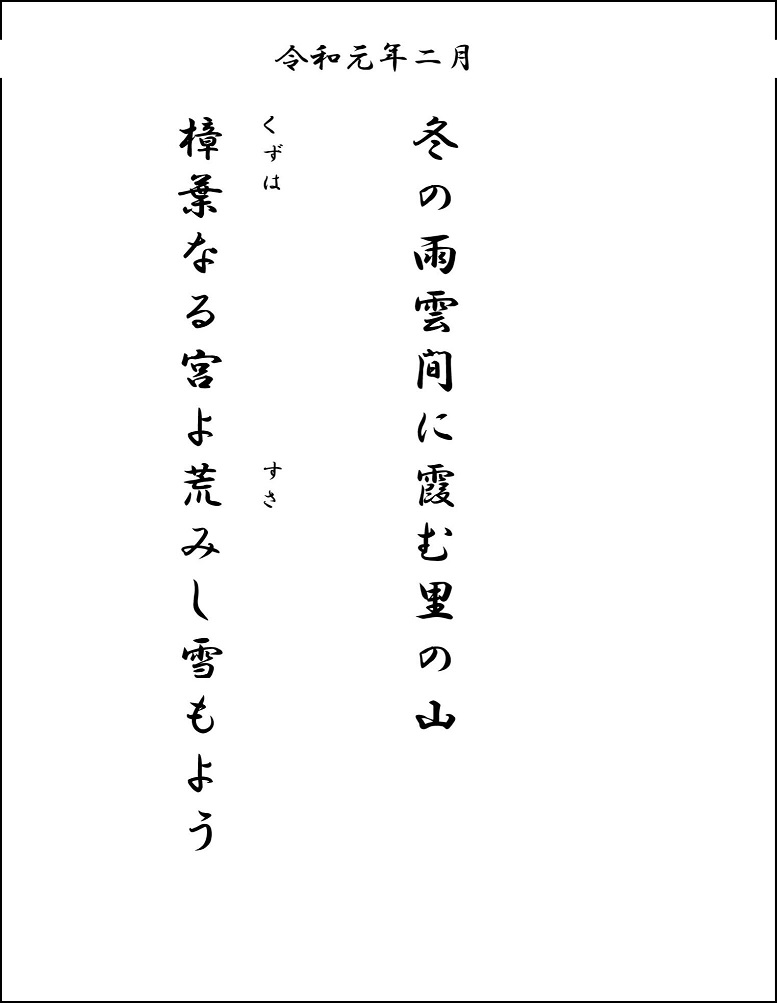 令和元年二月
冬の雨雲間に霞む里の山
くずは
すさ
樟葉なる宮よ荒みし雪もよう